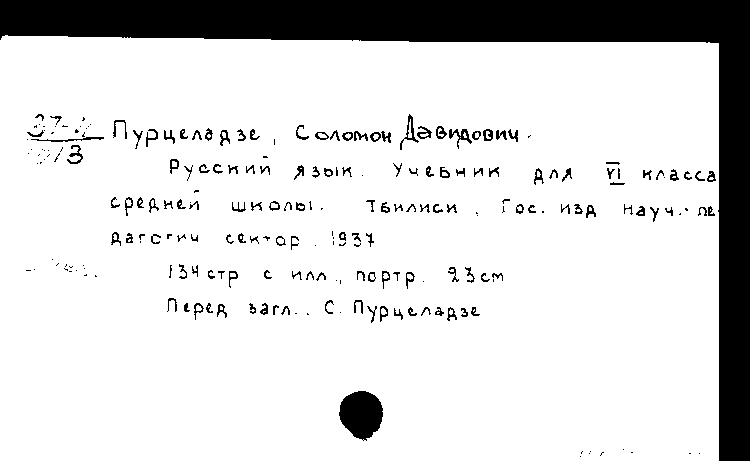 Пурцеладзе, Соломон Давидович.
Русский язык. Учебник для VI класса
средней школы. Тбилиси, Гос. изд науч.-пе-
дагогич сектор. 1937
134 стр с илл., портр. 23 см
Перед загл.: С. Пурцеладзе